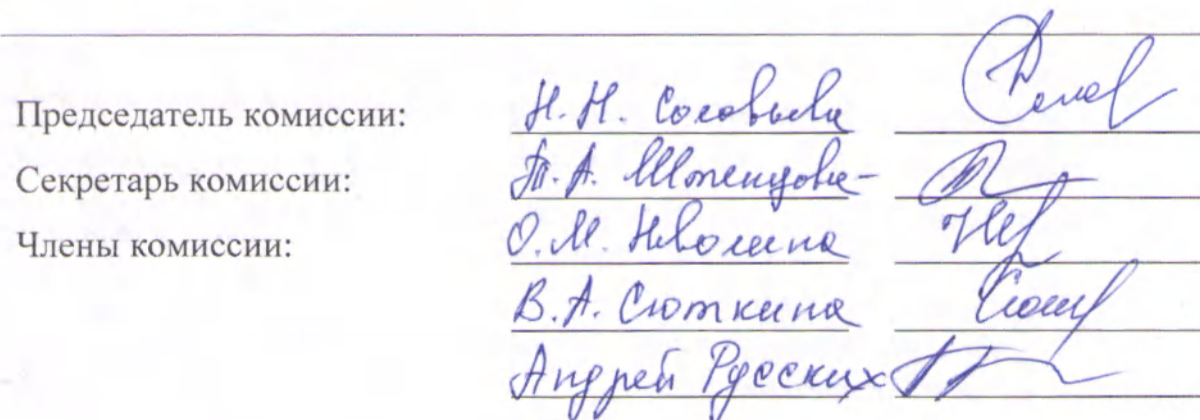 Председатель комиссии: Н.Н. Соловьева
Секретарь комиссии: Т.А.
Члены комиссии: О.М. Неволина
В.А. Сюткина
Андрей Русских